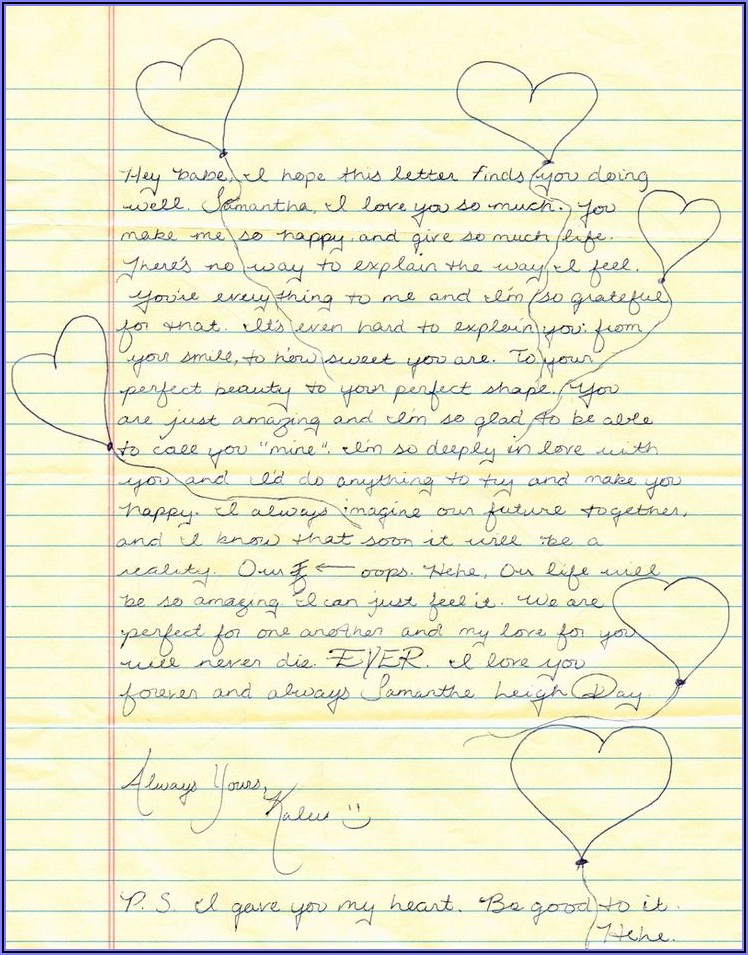 Hey babe, I hope this letter finds you doing
well. Samantha, I love you so much. You
make me so happy. and give so much life.
There's no way to explain the way I feel.
You're everything to me and I'm so grateful
for that. It's even hard to explain you: from
your smile, to how sweet you are. To your
perfect beauty to your perfect shape. You
are just amazing and I'm so glad to be able
to call you "mine". I'm so deeply in love with
you and I'd do anything to try and make you
happy. I always imagine our future together,
and I know that soon it will be a
reality. Our ← oops. Hehe, Our life will
be so amazing. I can just feel it. We are
perfect for one another and my love for you
will never die. EVER. I love you
forever and always Samantha Leigh Day.
Always Yours,
Kaleb :)
P.S. I gave you my heart. Be good to it.
Hehe.